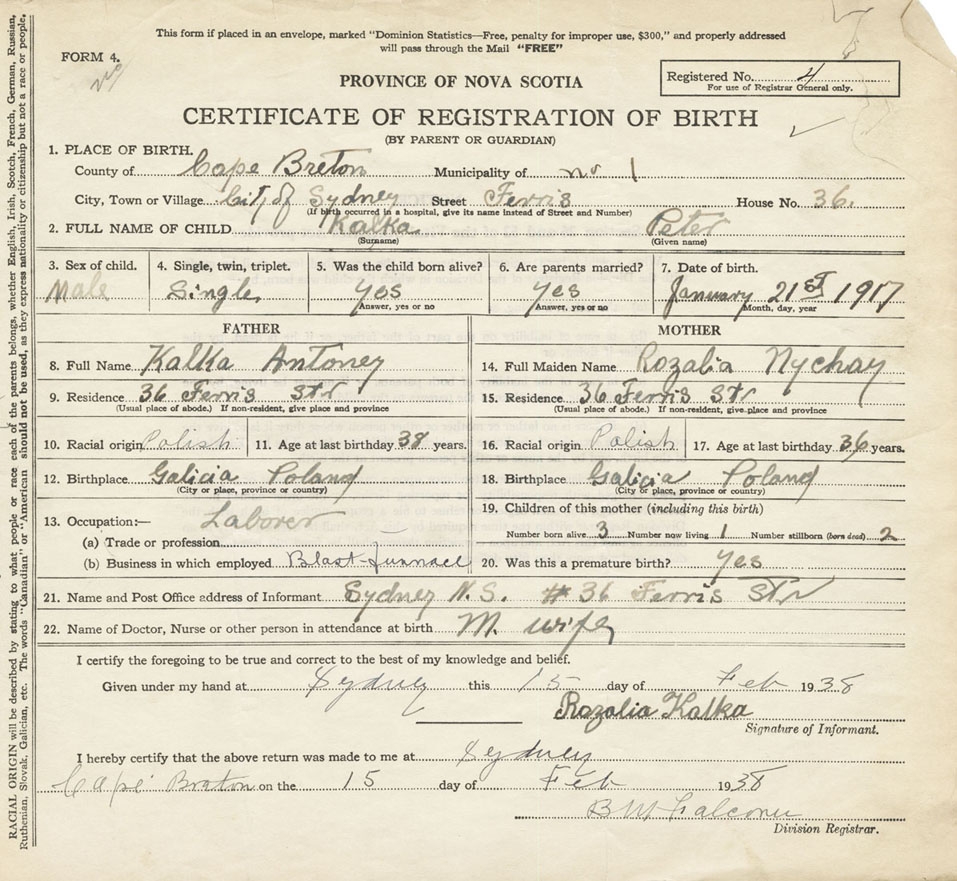 This form if placed in an envelope, marked "Dominion Statistics—Free, penalty for improper use, $300," and properly addressed
will pass through the Mail "FREE"
FORM 4.
No
PROVINCE OF NOVA SCOTIA
Registered No. 4
For use of Registrar General only.
CERTIFICATE OF REGISTRATION OF BIRTH
(BY PARENT OR GUARDIAN)
1. PLACE OF BIRTH.
County of Cape Breton Municipality of no 1
City, Town or Village City of Sydney Street Ferris House No. 36.
(If birth occurred in a hospital, give its name instead of Street and Number)
2. FULL NAME OF CHILD Kalka Peter
(Surname) (Given name)
3. Sex of child. 4. Single, twin, triplet. 5. Was the child born alive? 6. Are parents married? 7. Date of birth.
Male Single Yes Yes January 21st 1917
Answer, yes or no Answer, yes or no Month, day, year
FATHER MOTHER
8. Full Name Kalka Antoney 14. Full Maiden Name Rozalia Nychay
9. Residence 36 Ferris Str 15. Residence 36 Ferris Str
(Usual place of abode.) If non-resident, give place and province (Usual place of abode.) If non-resident, give place and province
10. Racial origin Polish 11. Age at last birthday 38 years. 16. Racial origin Polish 17. Age at last birthday 36 years.
12. Birthplace Galicia Poland 18. Birthplace Galicia Poland
(City or place, province or country) (City or place, province or country)
13. Occupation:— Laborer 19. Children of this mother (including this birth)
(a) Trade or profession Number born alive 3 Number now living 1 Number stillborn (born dead) 2
(b) Business in which employed Blast-funnael 20. Was this a premature birth? Yes
21. Name and Post Office address of Informant Sydney N.S. # 36 Ferris Str
22. Name of Doctor, Nurse or other person in attendance at birth M. wife
I certify the foregoing to be true and correct to the best of my knowledge and belief.
Given under my hand at Sydney this 15 day of Feb 1938
Rozalia Kalka
Signature of Informant.
I hereby certify that the above return was made to me at Sydney
Cape Braton on the 15 day of Feb 1938
B W Falconer
Division Registrar.
RACIAL ORIGIN will be described by stating to what people or race each of the parents belongs, whether English, Irish, Scotch, French, German, Russian,
Ruthenian, Slovak, Galician, etc. The words "Canadian" or "American" should not be used, as they express nationality or citizenship but not a race or people.